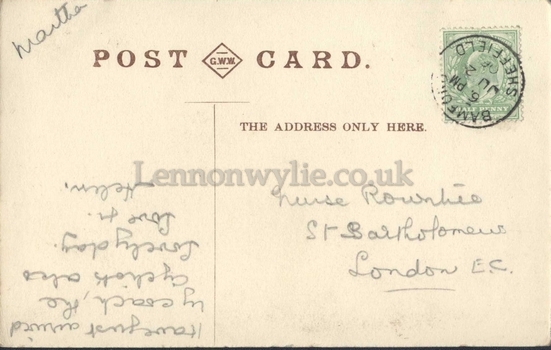 Martha
POST CARD.
G.W.W.
THE ADDRESS ONLY HERE.
HALF PENNY
BAMFORD
SHEFFIELD
6 PM
JU
Lennonwylie.co.uk
Nurse Rowntree
St Bartholomews
London E.C.
Have just arrived
by coach, the
cyclists also
Lovely day.
Love fr.
Helen.